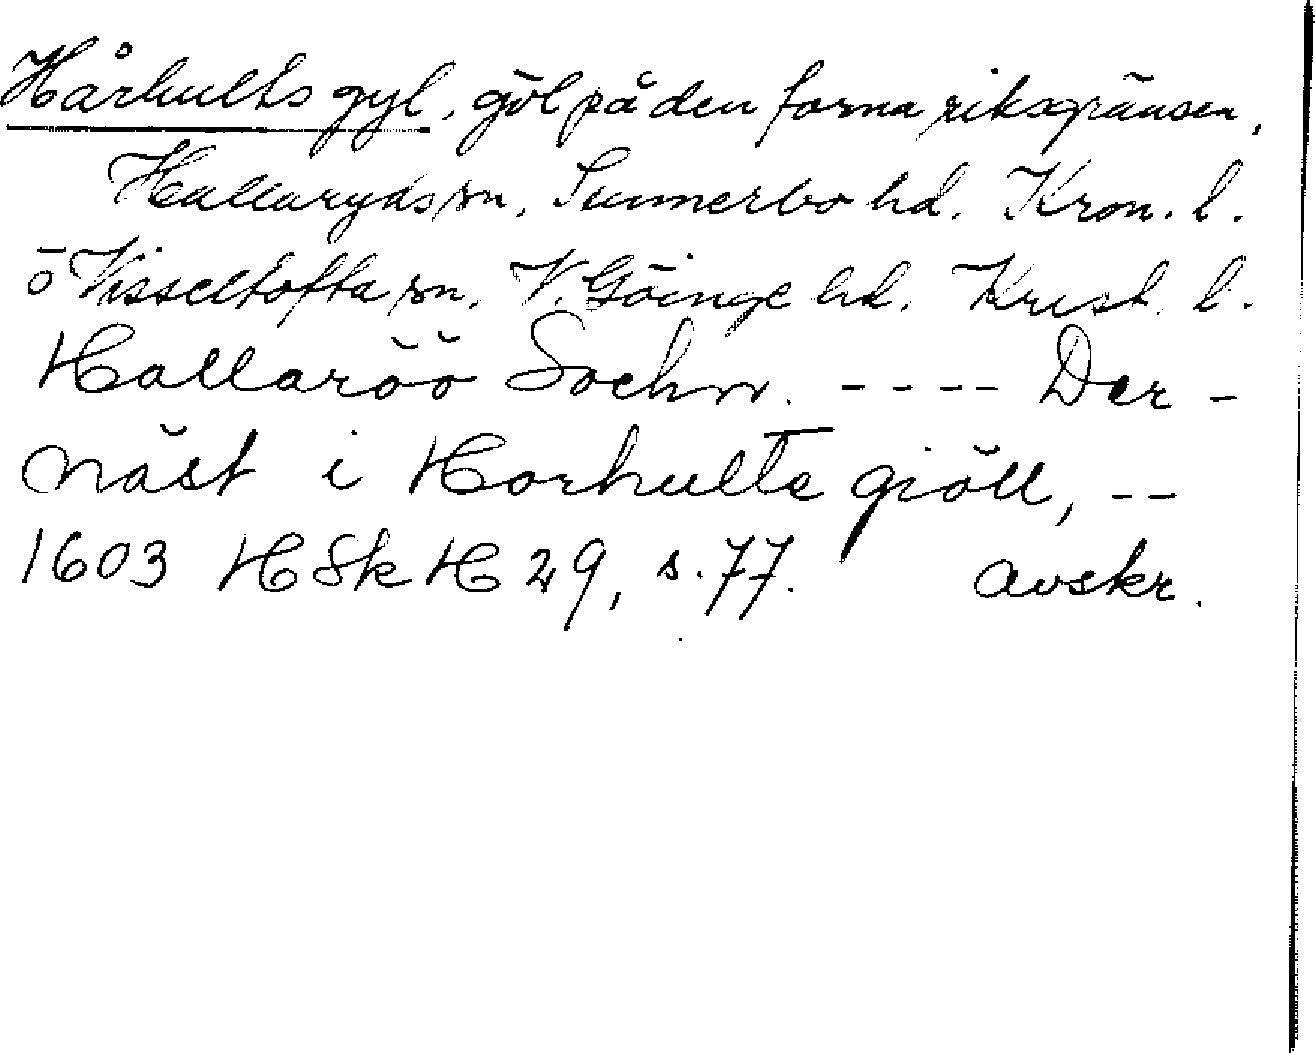 Hårhults gyl, göl på den forna riksgränsen,
Hallaryds sn, Sunnerbo hd. Kron. l.
o Visseltofta sn. V. Göinge hd. Krist. l.
Hallaröö Sochn. ---- Der-
näst i Horhulte giöll, --
1603 HSkH 29, s. 77. avskr.